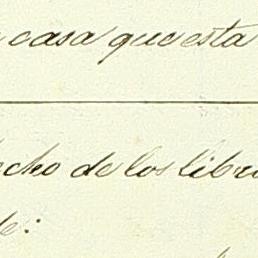 casa que esta
cho de los libro
de: